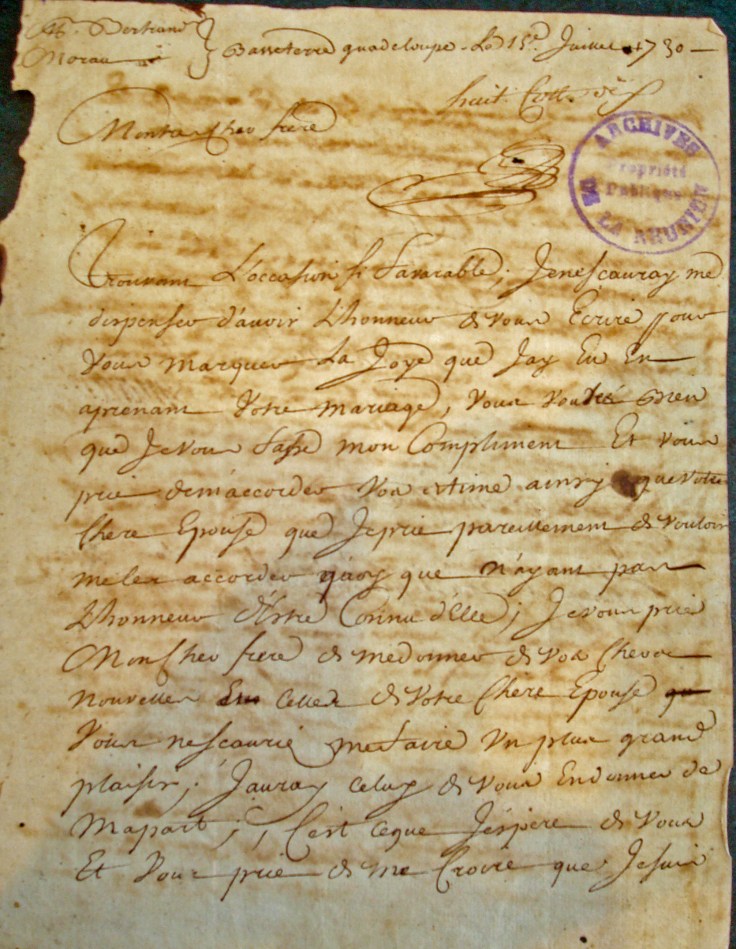 Bertrand
Morau
Basseterre guadeloupe - Le 15e. Juillet 1730 -
huit
Mon cher frere
ARCHIVES
Propriété
Publique
DE LA RÉUNION
Trouvant L'occasion si favarable, Jenesçauray me
dispenser d'avoir Lhonneur de vous Ecrire pour
Vous marquer La Joye que Jay Eu En
aprenant Votre mariage, Vous voudré Bien
que Je vous fasse mon Compliment Et vous
prie demaccorder Vos estime ainsy que votre
Chere Epouse que Je prie pareillement de vouloir
me les accorder quoy que N'ayant pas
Lhonneur d'Estre Connu d'Elle; Je vous prie
Mon Cher frere de medonner de Vos Cheres
nouvelles Celles de Votre Chere Epouse
Vous nesçaurié mefaire Un plus grand
plaisir; Jauray Celuy de Vous Endonner de
Mapart; C'est Ceque J'espere de Vous
Et Vous prie de me Croire que Je suis